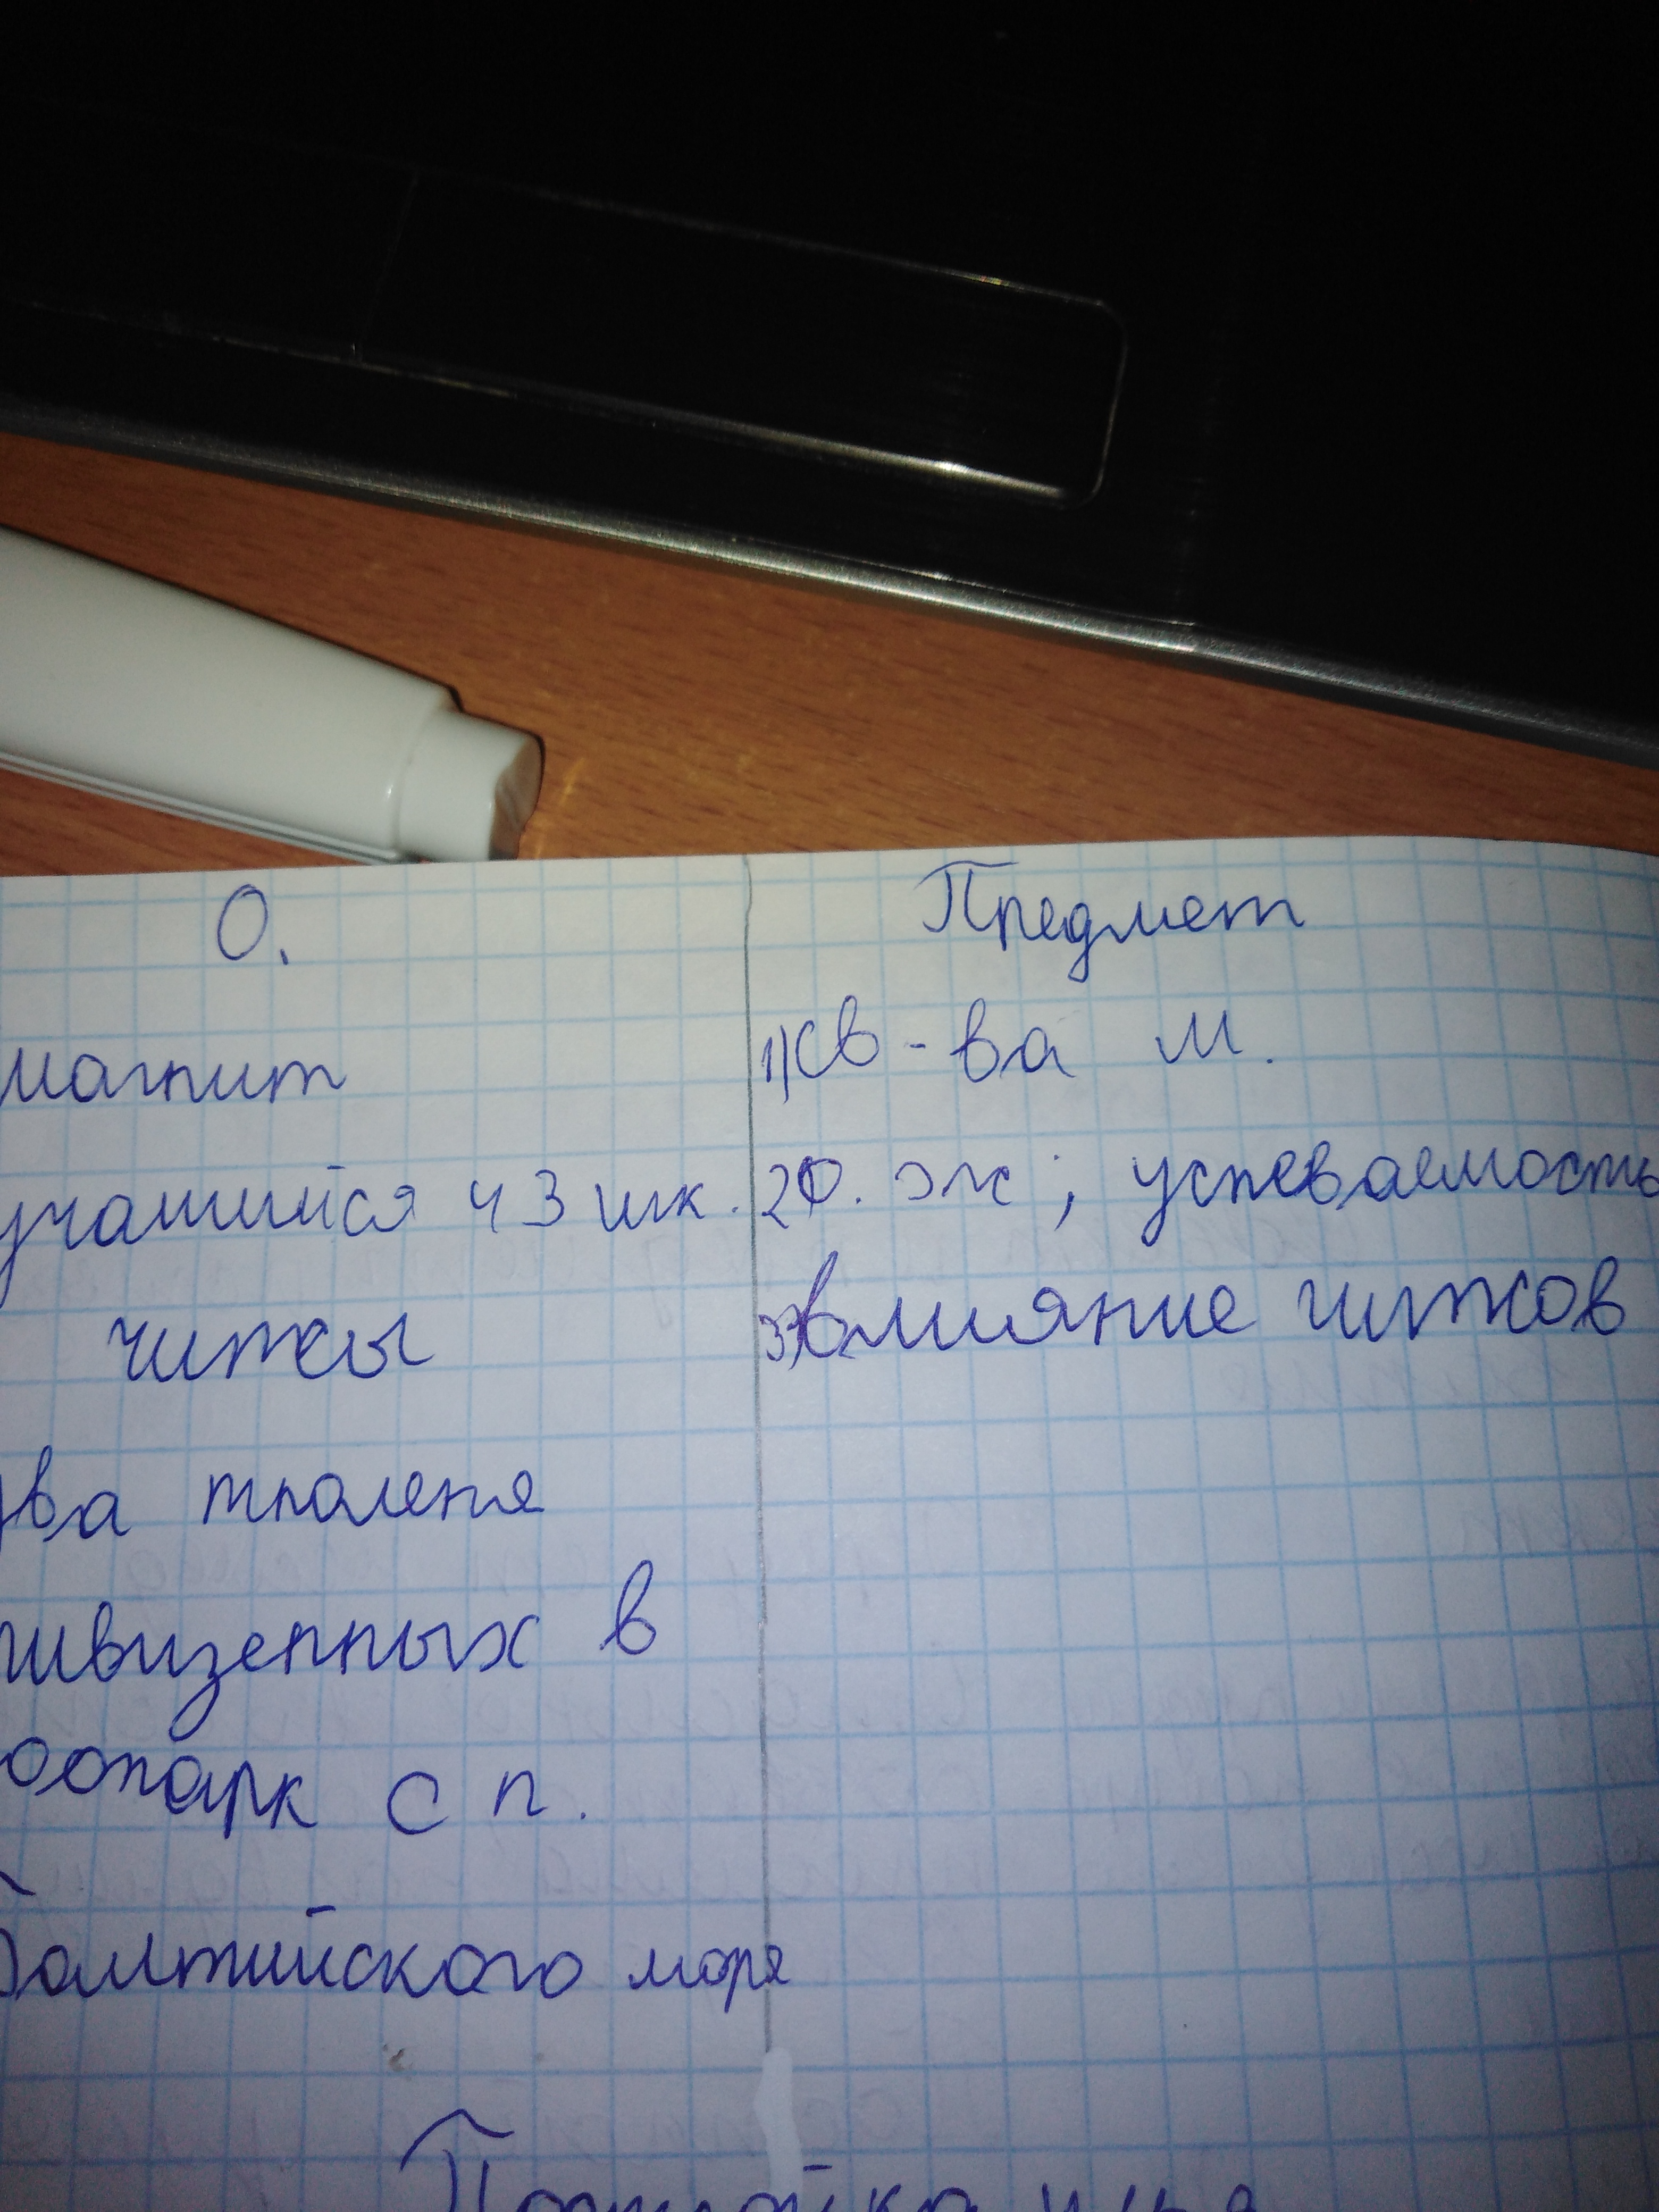 О. Предмет
магнит 1) св-ва м.
учащийся ч 3 шк. 2) О. эж; успеваемость
чипсы 3) влияние чипсов
два тюленя
привизенных в
зоопарк с п.
Балтийского моря